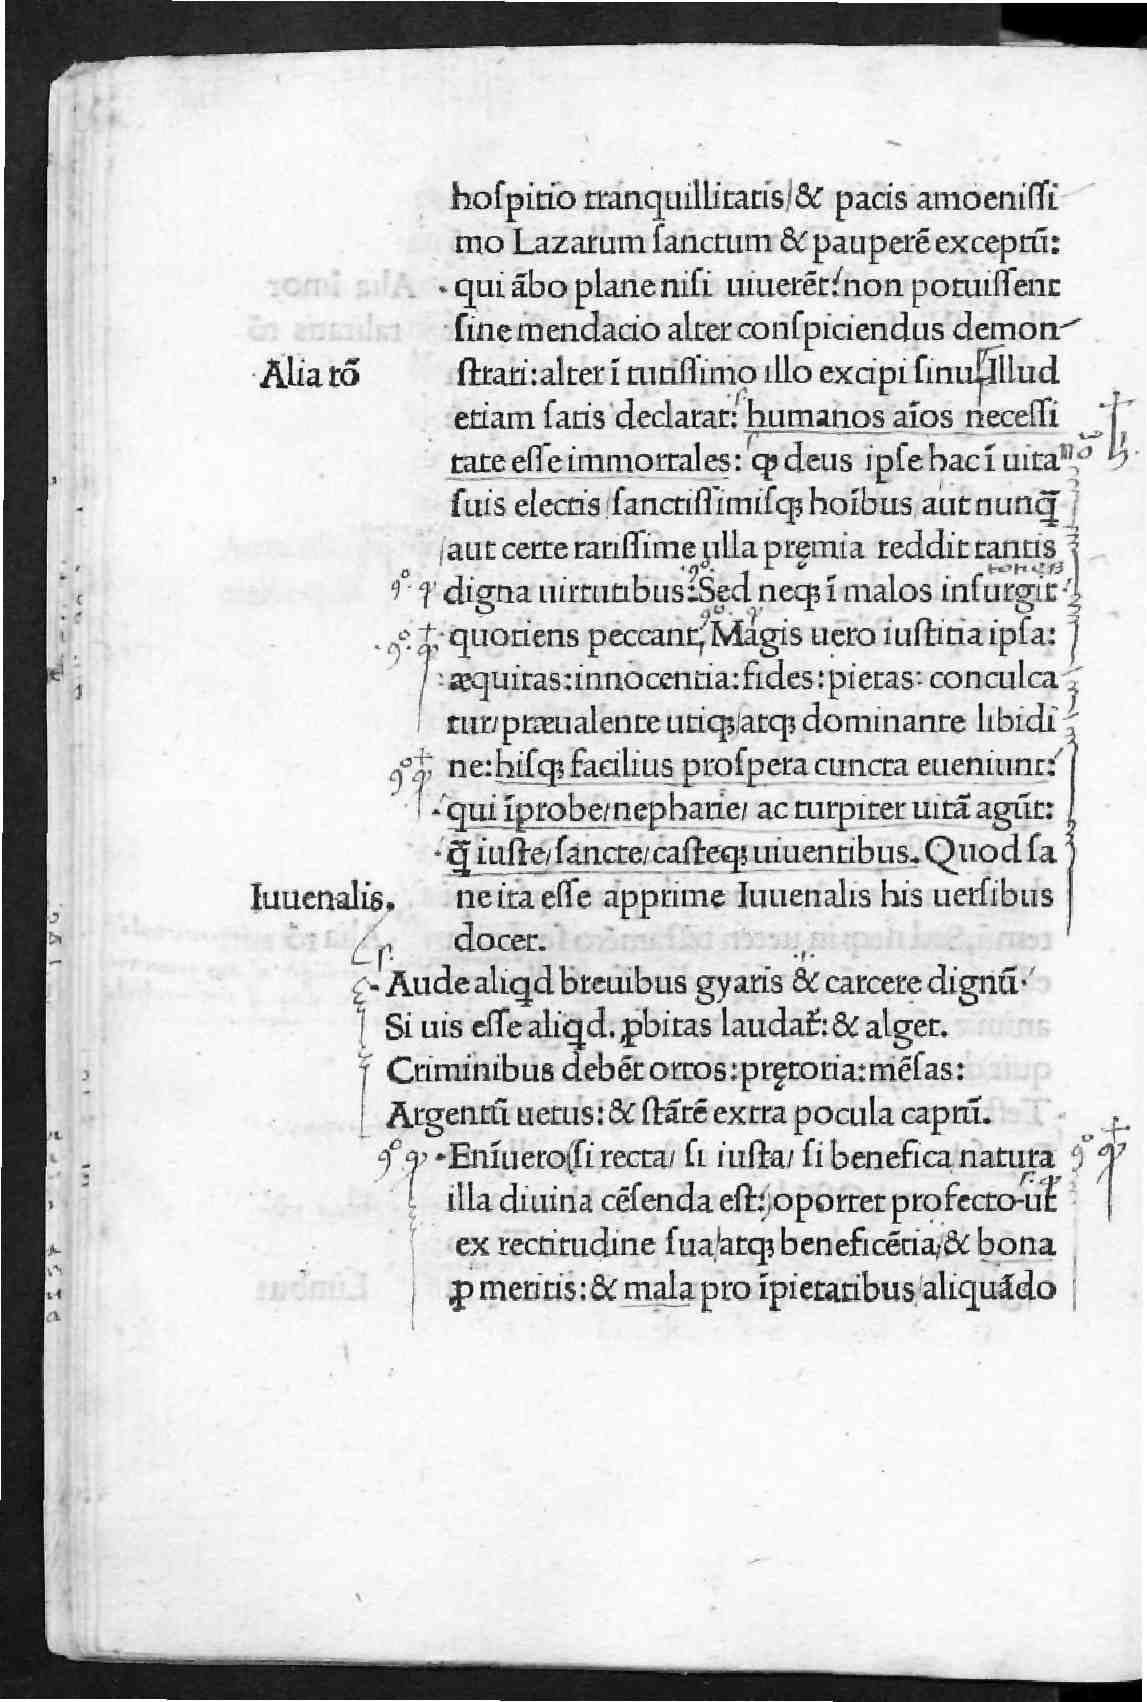 hoſpitio tranquillitatis/& pacis amoeniſſi
mo Lazarum ſanctum & pauperē exceptū:
qui ābo plane niſi uiuerēt: non potuiſſent
ſine mendacio alter conſpiciendus demon
Alia rō
ſtrati: alter ī tutiſſimo illo excipi ſinu. Illud
etiam ſatis declarat: humanos aīos neceſſi
tate eſſe immortales: ꝙ deus ipſe hac ī uita
ſuis electis/ſanctiſſimiſqꝫ hoībus/aut nunq̄
/aut certe rariſſime ulla pręmia reddit tantis
digna uirtutibus: Sed neqꝫ ī malos inſurgit
quotiens peccant, Magis uero iuſtitia ipſa:
æquitas: innocentia: fides: pietas: conculca
tur/præualente utiqꝫ/atqꝫ dominante libidi
ne: hiſqꝫ facilius proſpera cuncta eueniunt:
qui īprobe/nepharie/ ac turpiter uitā agūt:
q̄ iuſte/ſancte/caſteqꝫ uiuentibus. Quod ſa
Iuuenalis.
ne ita eſſe apprime Iuuenalis his uerſibus
docet.
Aude aliqd breuibus gyaris & carcere dignū
Si uis eſſe aliqd. ꝓbitas laudat̄: & alget.
Criminibus debēt ortos: prętoria: mēſas:
Argentū uetus: & ſtātē extra pocula caprū.
Enīuero (ſi recta/ ſi iuſta/ ſi benefica natura
illa diuina cēſenda eſt:) oportet profecto ut
ex rectitudine ſua/atqꝫ beneficētia/& bona
ꝓ meritis: & mala pro īpietatibus/aliquādo